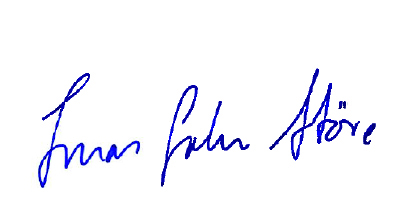 Jonas Gahr Störe